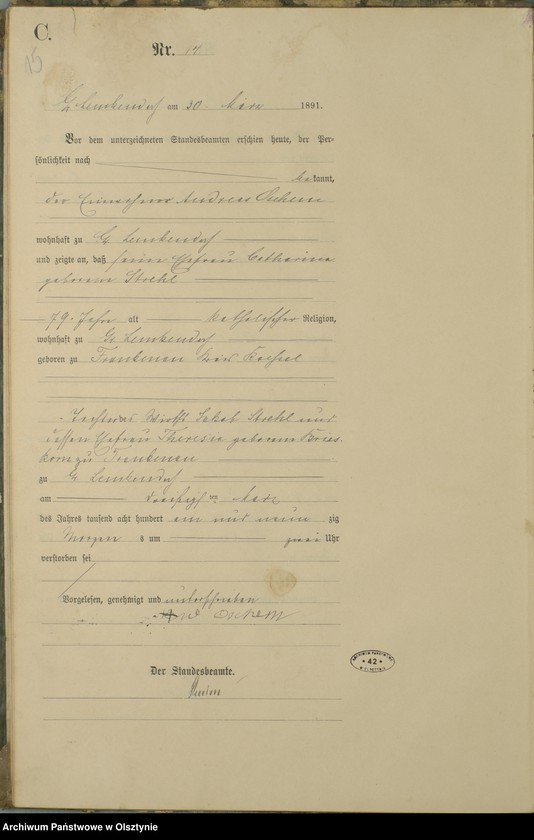 C.
15
Nr. 14
Gr. Lemkendorf am 30. März 1891.
Vor dem unterzeichneten Standesbeamten erschien heute, der Per-
sönlichkeit nach
bekannt,
der Einwohner Andreas
wohnhaft zu Gr. Lemkendorf
und zeigte an, daß seine Ehefrau Catharina
geborene Strehl
79 Jahre alt katholischer Religion,
wohnhaft zu Gr. Lemkendorf
geboren zu Frankenau Kreis Roessel
Tochter des Wirths Jakob Strehl und
dessen Ehefrau Theresia geborene Bries-
korn zu Frankenau
zu Gr. Lemkendorf
am dreißigsten März
des Jahres tausend acht hundert ein und neun zig
Morgens um zwei Uhr
verstorben sei
Vorgelesen, genehmigt und unterschrieben
And
Der Standesbeamte.
42
Archiwum Państwowe w Olsztynie